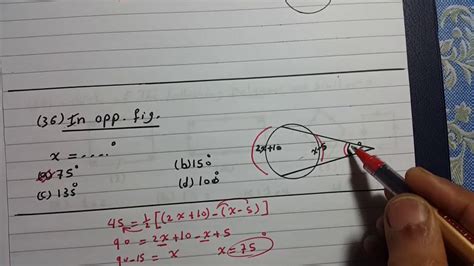 (36) In opp. fig.
x = ....°
(a) 75° (b) 150°
(c) 135° (d) 100°
2x+10 x-5
45 = 1/2 [(2x+10) - (x-5)]
90 = 2x+10 - x+5
90-15 = x x = 75°